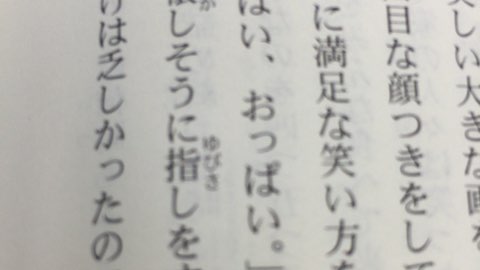 しい大きな画を
目な顔つきをして
に満足な笑い方を
ぱい、おっぱい。」
しそうに指しを
けは乏しかったの